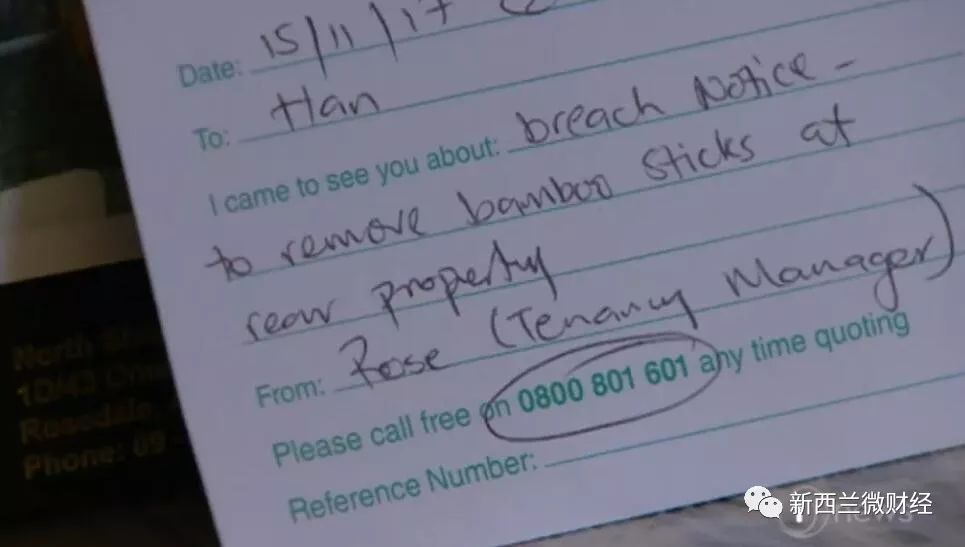 Date: 15/11/17
To: Han
I came to see you about: breach Notice -
to remove bamboo sticks at
rear property
From: Rose (Tenancy Manager)
Please call free on 0800 801 601 any time quoting
Reference Number:
North
10/43
Rosedale,
Phone: 09
新西兰微财经
news